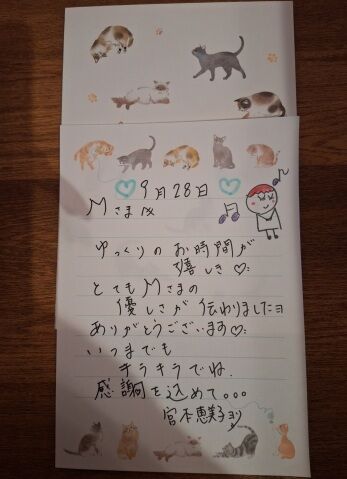 9月28日
Mさま
ゆっくりのお時間が
嬉しき♡
とてもMさまの
優しさが伝わりましたヨ
ありがとうございます♡
いつまでも
キラキラでね
感謝を込めて。。。
宮本恵美子より